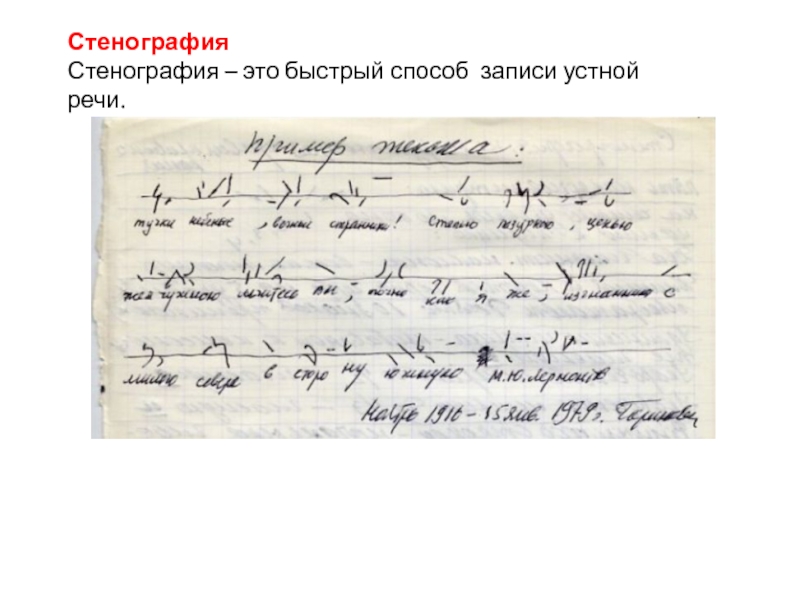 Стенография
Стенография – это быстрый способ записи устной
речи.
Пример текста:
тучки небесные, вечные странники! Степью лазурною, цепью
жемчужною мчитесь вы, точно как я же, изгнанники с
милого севера в сторону южную М.Ю. Лермонтов
1916 - 15 янв. 1979 г.